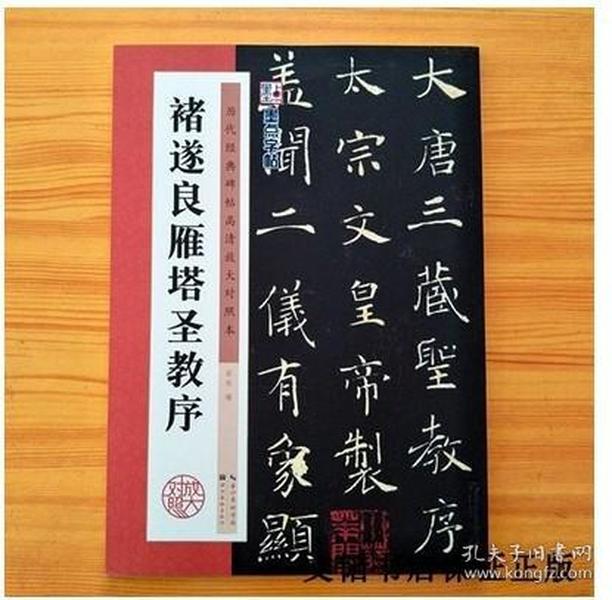 大唐三藏聖教序
太宗文皇帝製
蓋聞二儀有象顯
墨点字帖
历代经典碑帖高清放大对照本
褚遂良雁塔圣教序
放大
对照
孔夫子旧书网
www.kongfz.com